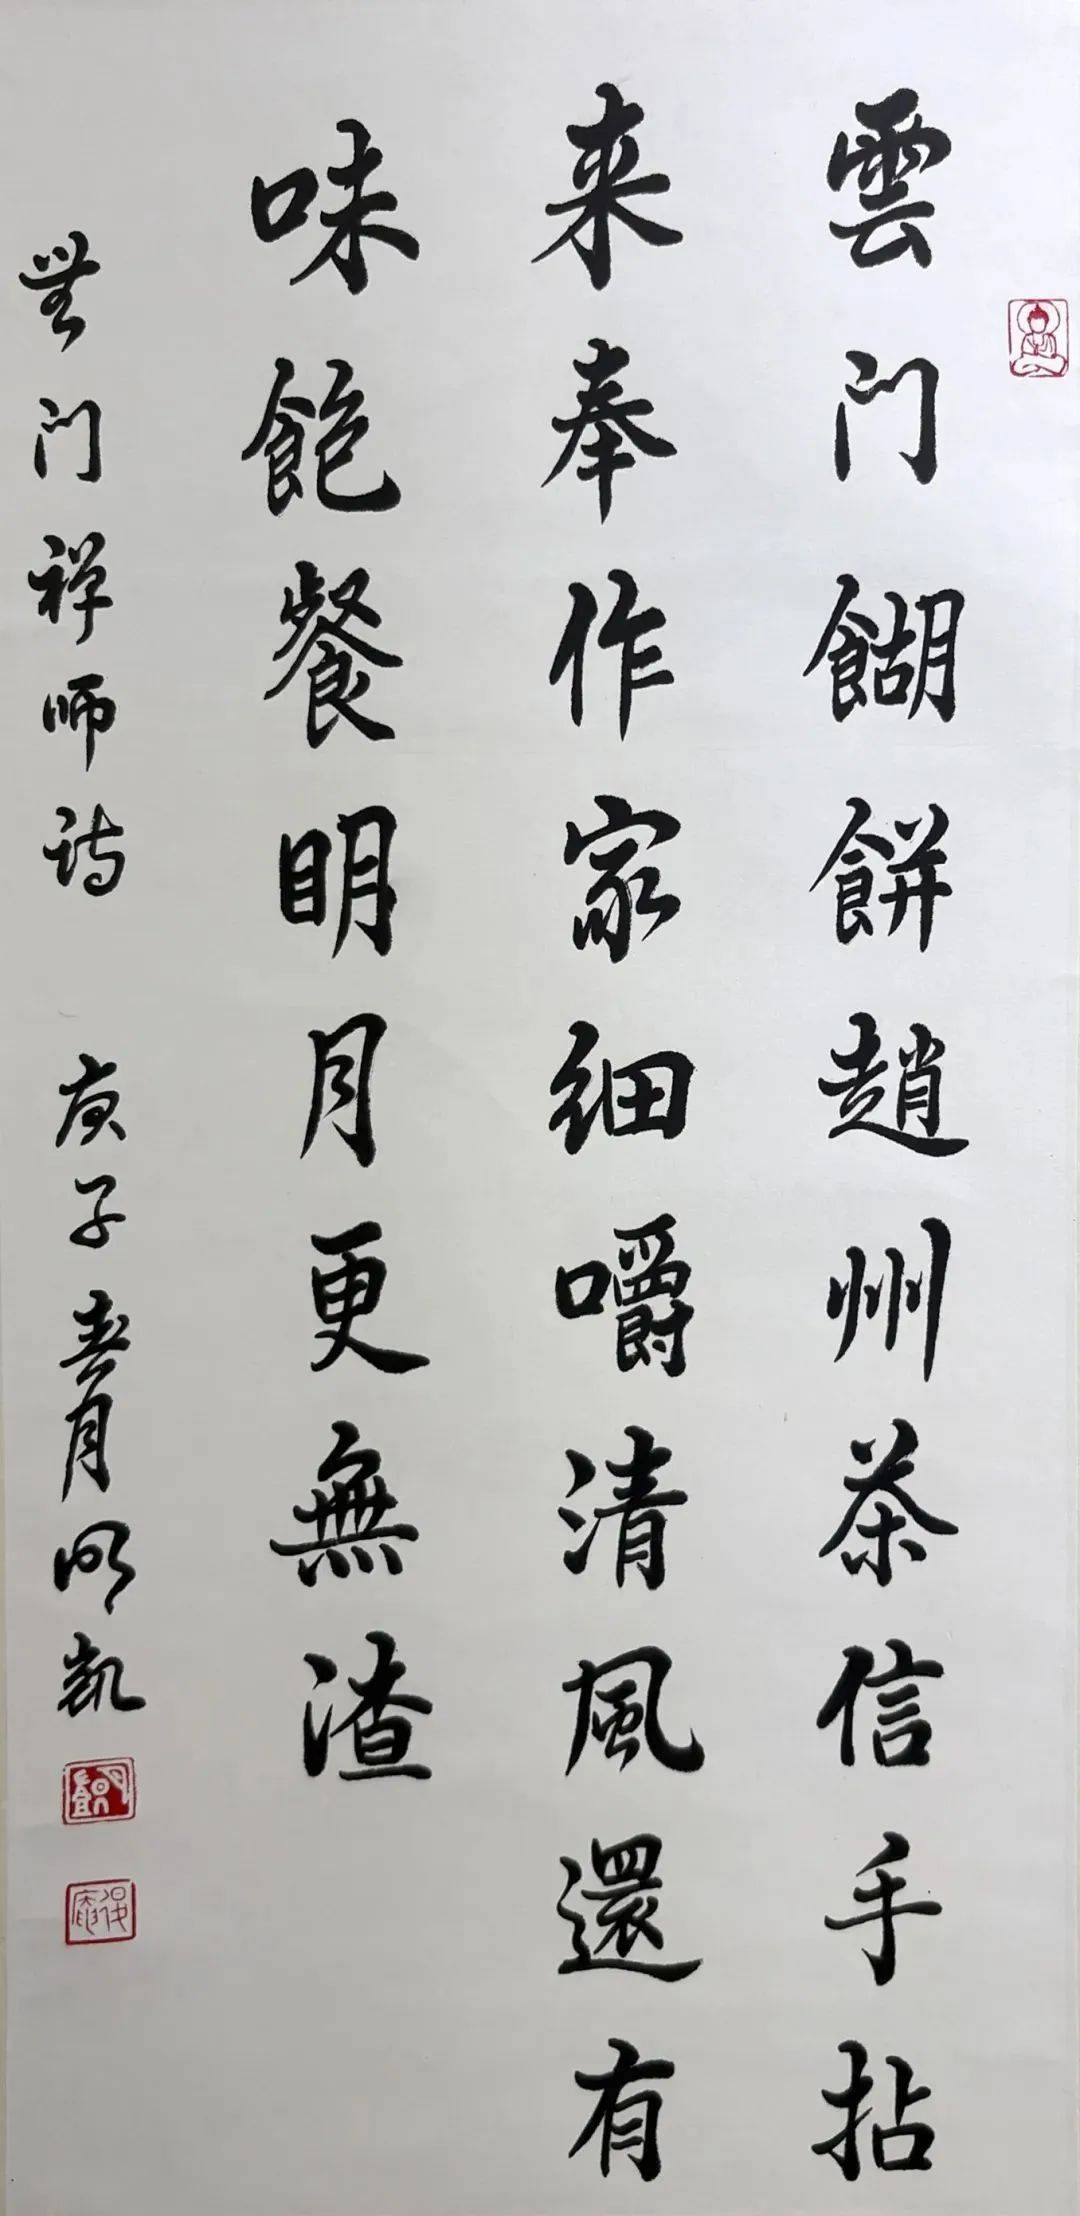 雲门餬餅趙州茶信手拈
来奉作家细嚼清風還有
味飽餐明月更無渣
無门禅师诗 庚子春月明凱